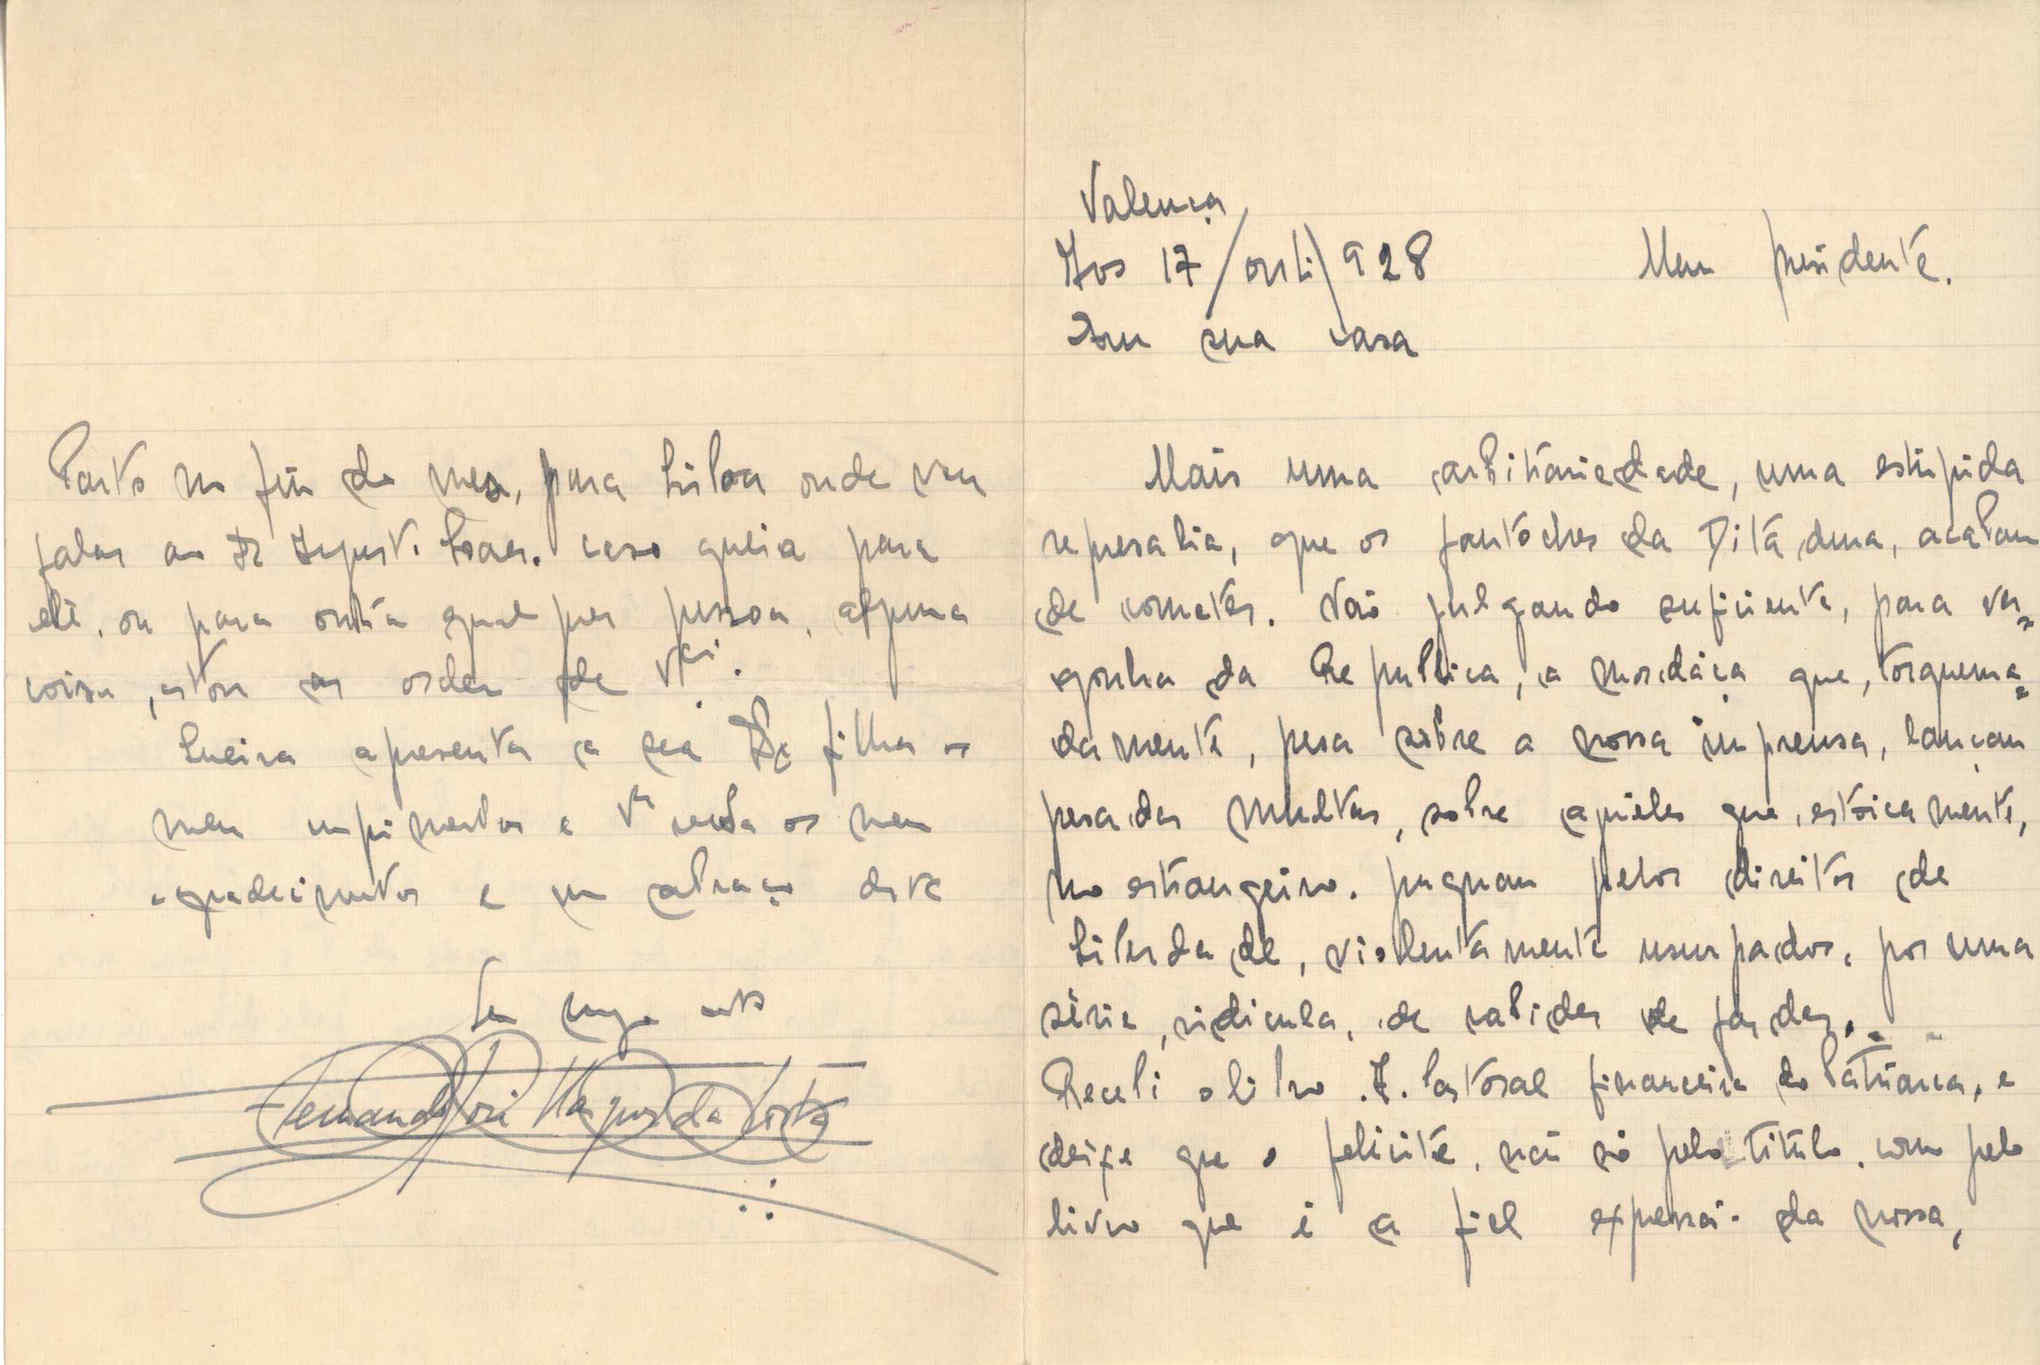 Valença
Aos 17/out/928
Meu presidente.
Em sua casa
Mais uma arbitrariedade, uma estupida
represalia, que os fantoches da Ditadura, acabam
de cometer. Não julgando suficiente, para ver=
gonha da Republica, a mordáça que, torquema=
damente, pesa sobre a nossa imprensa, lançam
pesadas multas, sobre aqueles que, estoicamente,
no estrangeiro. pugnam pelos direitos de
Liberdade, violentamente usurpados, por uma
série, ridicula, de cabides de fardas...
Recebi o livro. A. Pastoral financeira do Patriarca, e
deixe que o felicite, não só pelo titulo. como pelo
livro que é a fiel expressão da nossa,
Parto no fim do mez, para Lisboa onde vou
falar ao Dr August. Soares. Caso queira para
ele, ou para outra qualquer pessoa, alguma
coisa, estou as ordens de V.
Queira apresentar a sua filha os
meus cumprimentos e V receba os meus
agradecimentos e um abraço deste
Seu amigo
Fernando José Marques da Costa